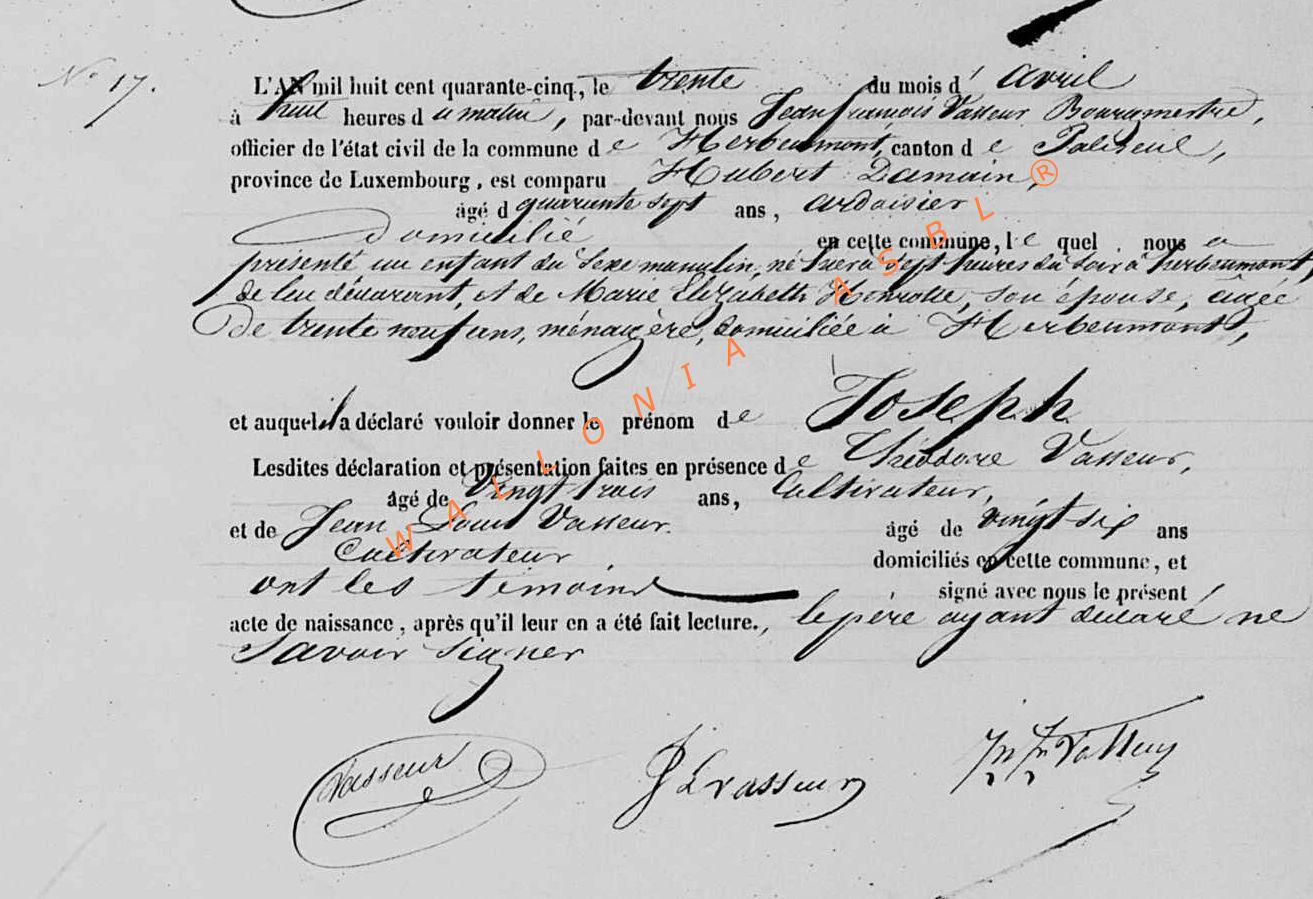 N° 17.
L'AN mil huit cent quarante-cinq, le trente du mois d' avril
à huit heures d u matin, par-devant nous Jean françois Vasseur Bourgmestre,
officier de l'état civil de la commune d e Herbeumont, canton d e Paliseul,
province de Luxembourg, est comparu Hubert Damain,
âgé d quarante sept ans, ardoisier
Domicilié en cette commune, l e quel nous a
présenté un enfant du sexe masculin, né hier à sept heures du soir à herbeumont
de lui déclarant, et de Marie Elizabeth Henrotte, son épouse, âgée
De trente neuf ans, ménagère, domiciliée à Herbeumont,
et auquel il a déclaré vouloir donner le prénom de Joseph
Lesdites déclaration et présentation faites en présence de Théodore Vasseur,
âgé de vingt trois ans, Cultivateur,
et de Jean Louis Vasseur âgé de vingt six ans
Cultivateur domiciliés en cette commune, et
ont les témoins signé avec nous le présent
acte de naissance, après qu'il leur en a été fait lecture., le père ayant déclaré ne
Savoir signer
Vasseur J L vasseur Jn fs Vasseur
WALLONIA ASBL ®